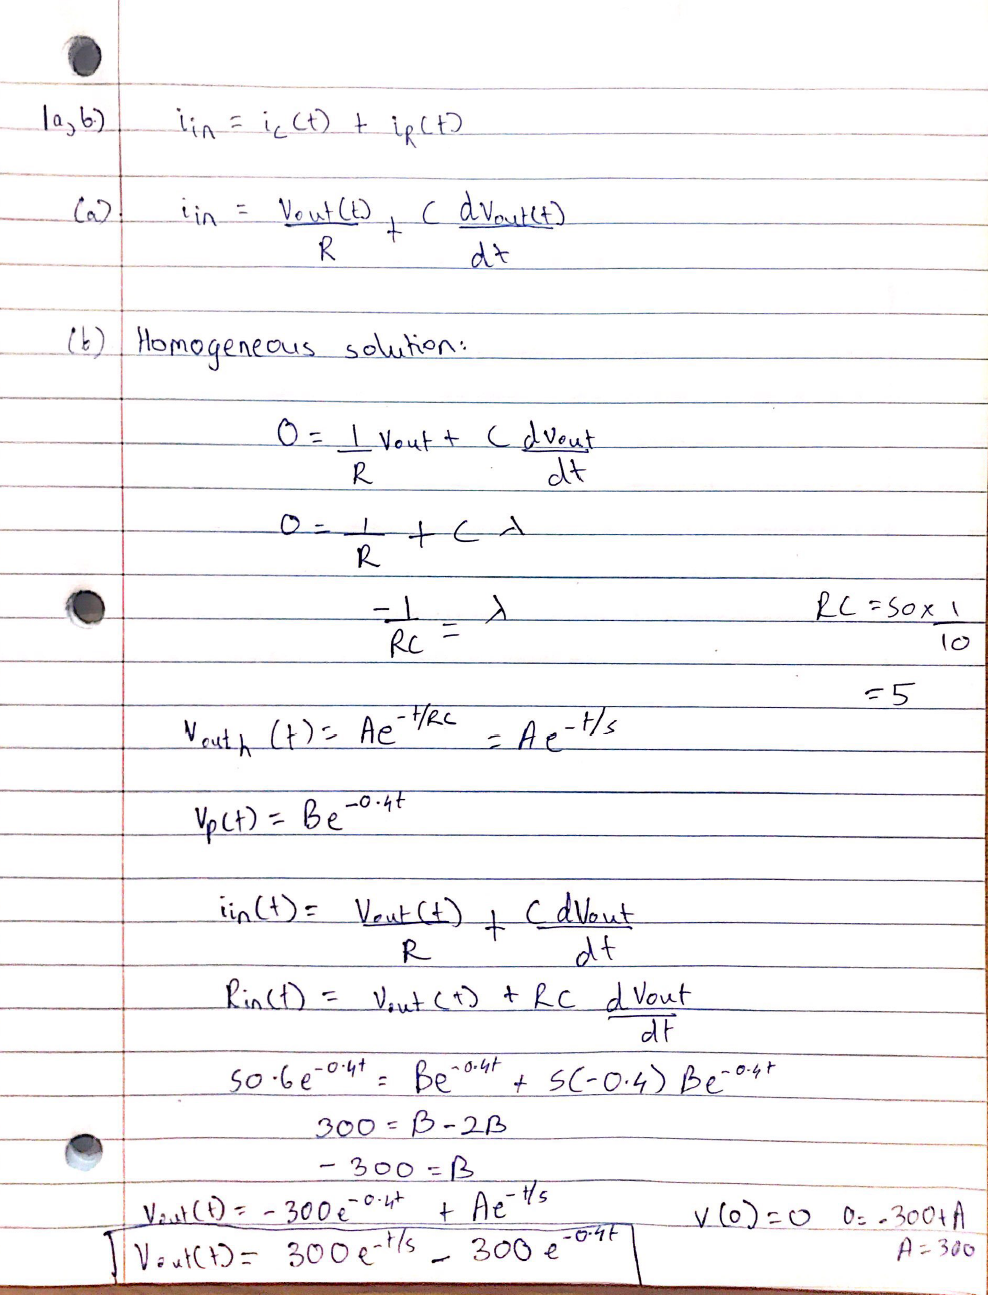 1a,b) iin = ic(t) + iR(t)
(a) iin = Vout(t)/R + C dVout(t)/dt
(b) Homogeneous solution:
0 = 1/R Vout + C dVout/dt
0 = 1/R + C λ
-1/RC = λ
RC = 50 x 1/10
= 5
Vouth (t) = Ae^-t/RC = Ae^-t/5
Vp(t) = Be^-0.4t
iin(t) = Vout(t)/R + C dVout/dt
Rin(t) = Vout(t) + RC dVout/dt
50·6e^-0.4t = Be^-0.4t + 5(-0.4) Be^-0.4t
300 = B - 2B
- 300 = B
Vout(t) = - 300e^-0.4t + Ae^-t/5
V(0) = 0 0 = -300 + A
A = 300
Vout(t) = 300e^-t/5 - 300e^-0.4t